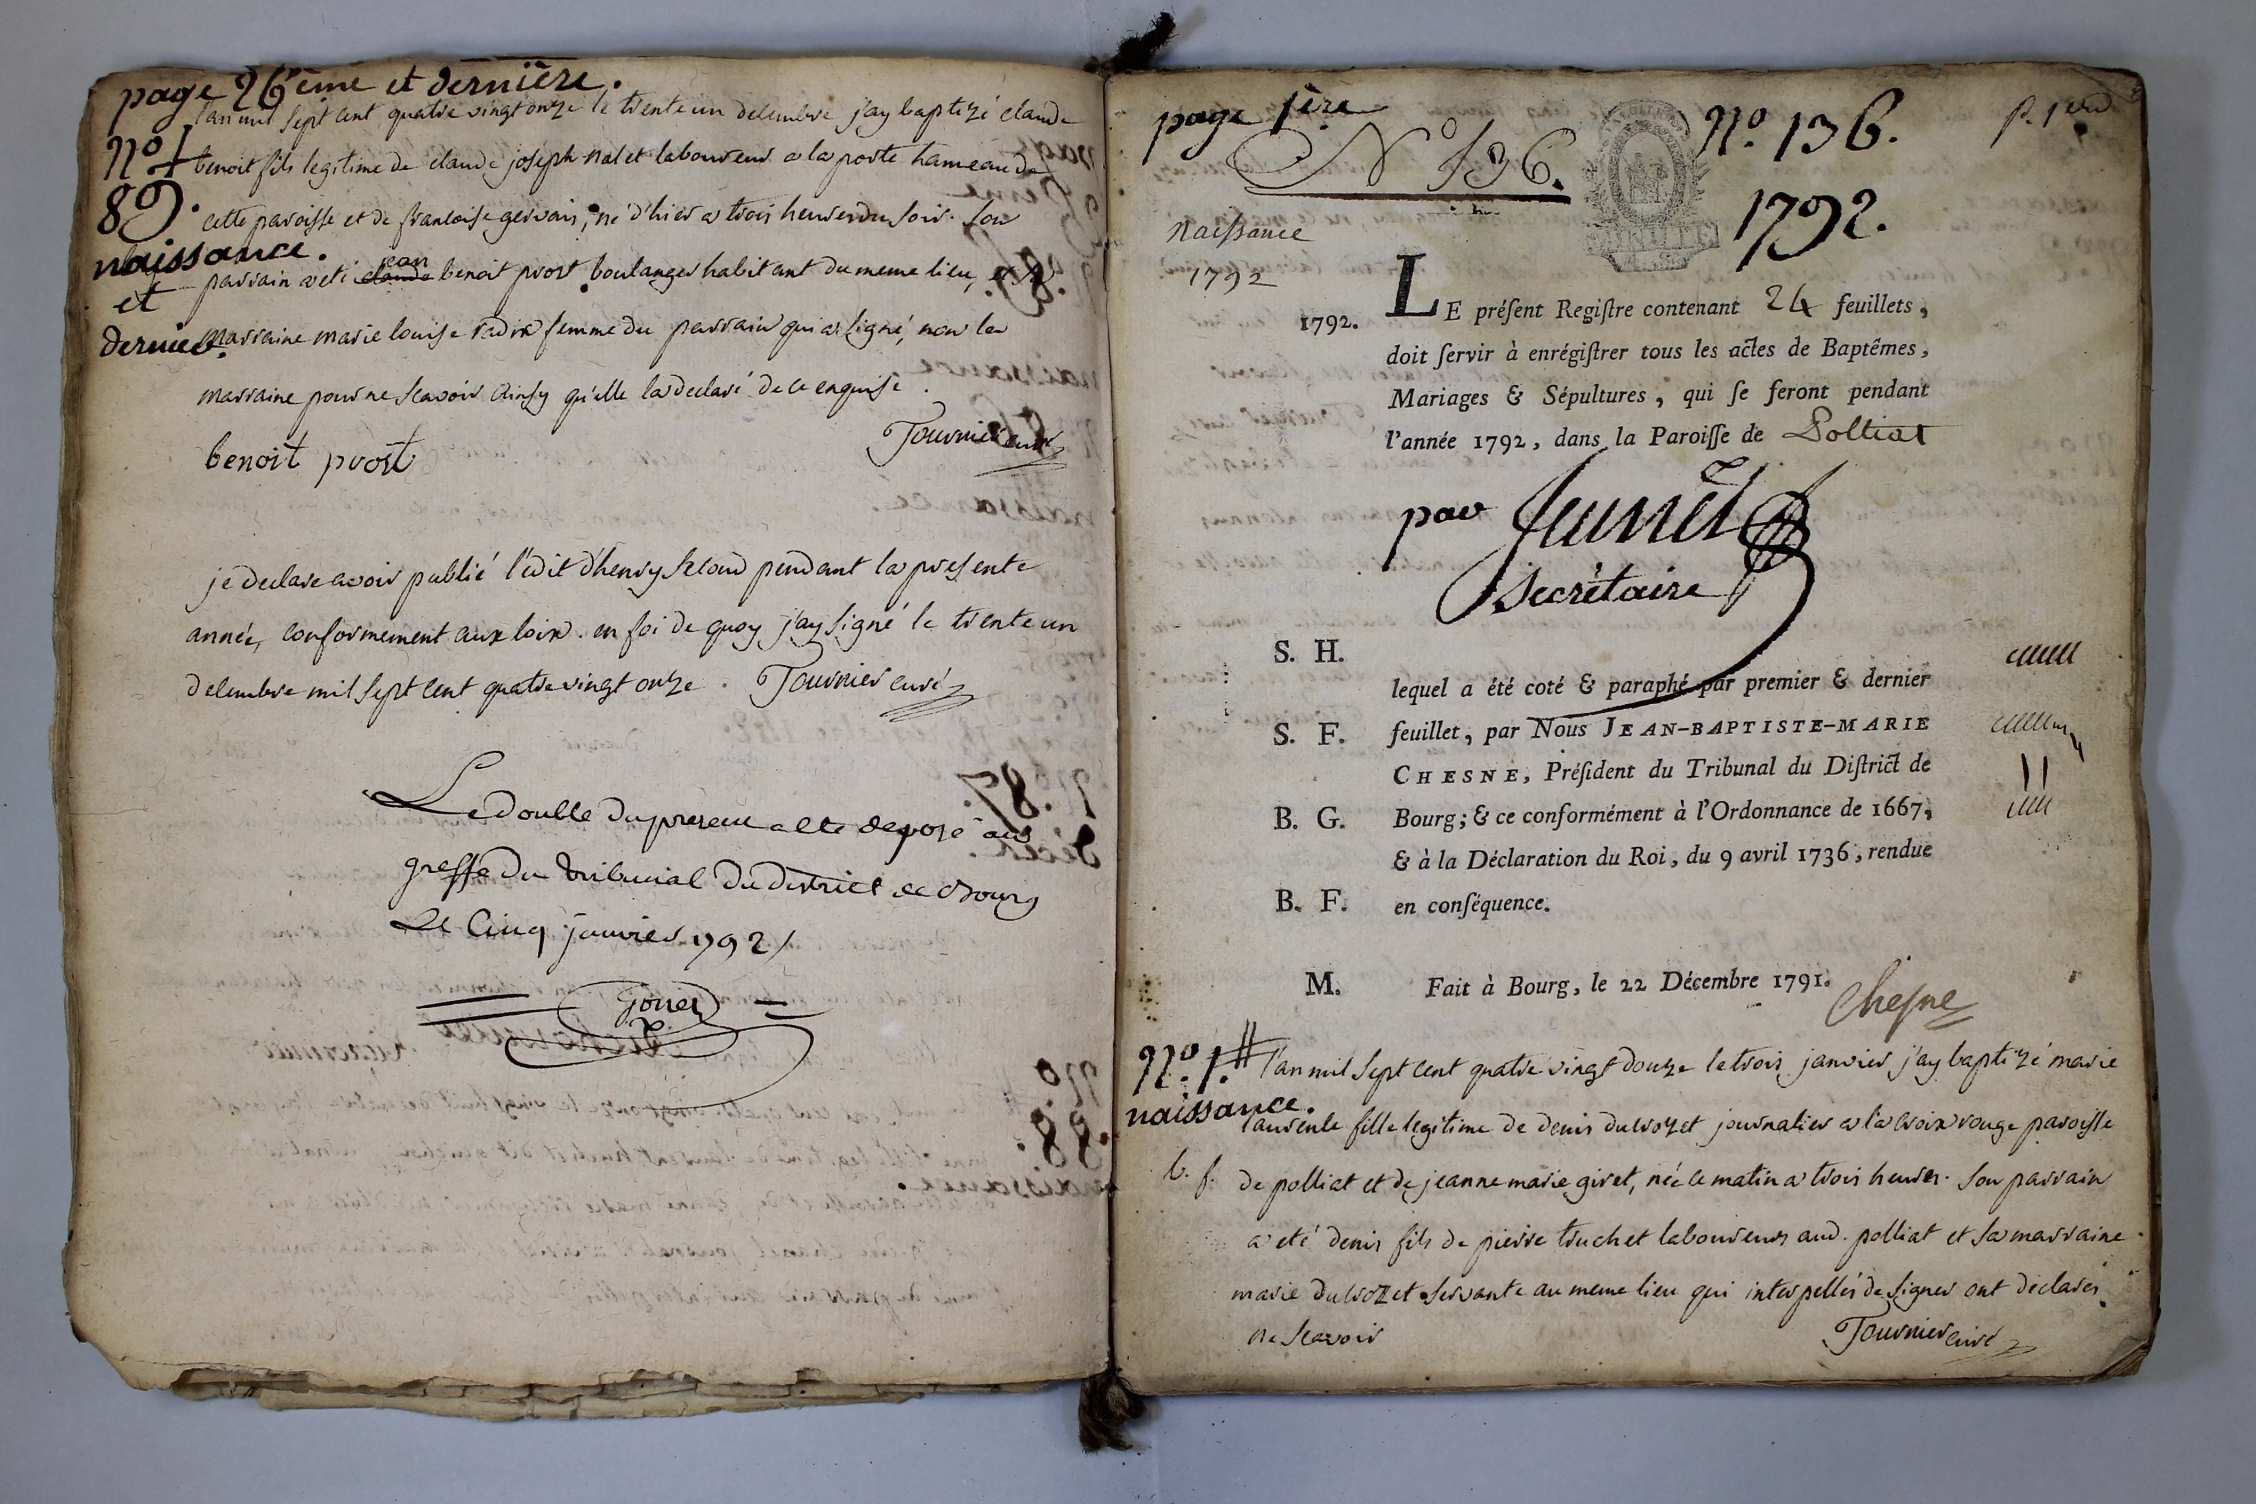 page 26ème et dernière.
l'an mil sept cent quatre vingt onze le trente un decembre j'ay baptizé claude
N° 89.
benoit fils legitime de claude joseph nalet laboureur a la poste hameau de
cette paroisse et de francoise gervais, né d'hier a trois heures du soir. son
naissance.
et
dernier.
parrain a eté claude jean benoit prost boulanger habitant du meme lieu, et sa
marraine marie louise radix femme du parrain qui a signé, non la
marraine pour ne scavoir ainsy qu'elle la declaré de ce enquise.
benoit prost
Tournier curé
je declare avoir publié l'edit d'henry second pendant la presente
année, conformement aux loix. en foi de quoy j'ay signé le trente un
decembre mil sept cent quatre vingt onze. Tournier curé
Le double du present a ete deposé au
greffe du tribunal du district de Bourg
Le Cinq janvier 1792
page 1ère
N° 136.
N°. 136.
p. 1ere
1792.
naissance
1792
1792.
LE préſent Regiſtre contenant 24 feuillets,
doit ſervir à enrégiſtrer tous les actes de Baptêmes,
Mariages & Sépultures, qui ſe feront pendant
l'année 1792, dans la Paroiſſe de Polliat
par Junet
secrétaire
S. H.
lequel a été coté & paraphé par premier & dernier
S. F.
feuillet, par Nous JEAN-BAPTISTE-MARIE
CHESNE, Préſident du Tribunal du Diſtrict de
B. G.
Bourg; & ce conformément à l'Ordonnance de 1667,
& à la Déclaration du Roi, du 9 avril 1736, rendue
B. F.
en conſéquence.
M.
Fait à Bourg, le 22 Décembre 1791.
Chesne
N°. 1.
l'an mil sept cent quatre vingt douze le trois janvier j'ay baptizé marie
naissance.
laurence fille legitime de denis durozet journalier a la croix rouge paroisse
b. f.
de polliat et de jeanne marie giret, née ce matin a trois heures. son parrain
a eté denis fils de pierre truchet laboureur aud. polliat et sa marraine
marie durozet servante au meme lieu qui interpellés de signer ont declarés
ne scavoir
Tournier curé